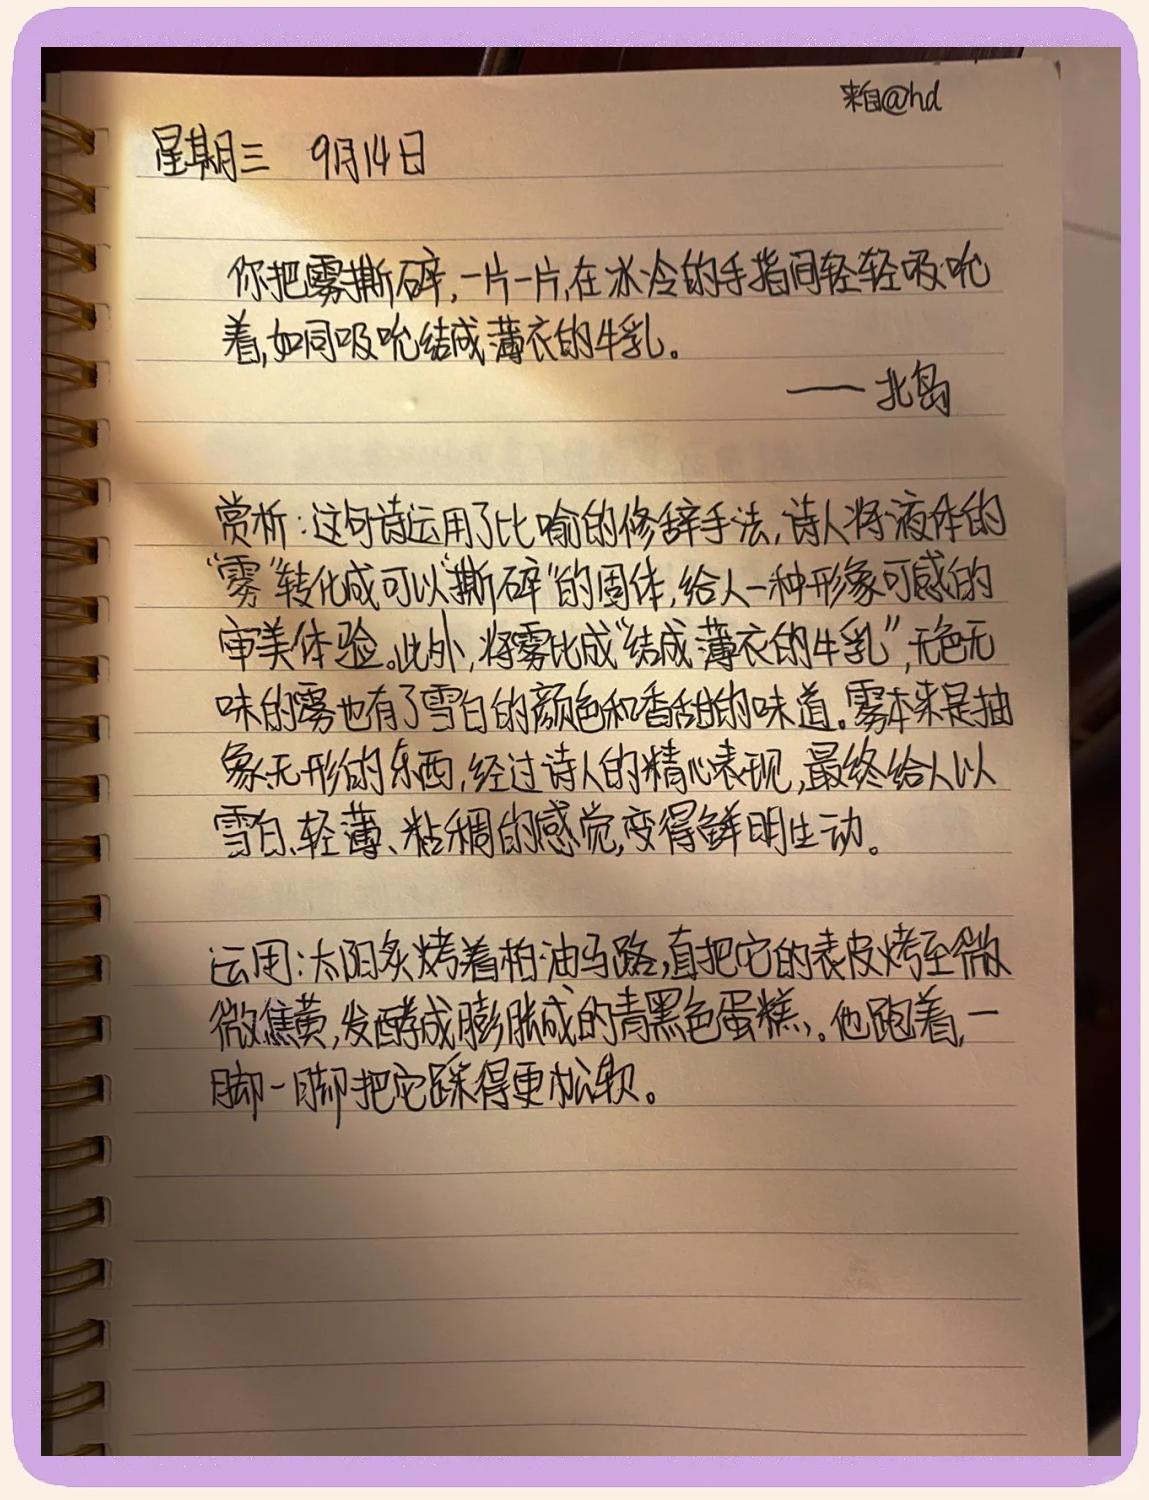 来自@hd
星期三 9月14日
你把雾撕碎,一片一片,在冰冷的手指间轻轻吸吮
着,如同吸吮结成薄衣的牛乳。
——北岛
赏析:这句诗运用了比喻的修辞手法,诗人将液体的
“雾”转化成可以“撕碎”的固体,给人一种形象可感的
审美体验。此外,将雾比成“结成薄衣的牛乳”,无色无
味的雾也有了雪白的颜色和香甜的味道。雾本来是抽
象、无形的东西,经过诗人的精心表现,最终给人以
雪白、轻薄、粘稠的感觉,变得鲜明生动。
运用:太阳炙烤着柏油马路,直把它的表皮烤至微
微焦黄,发酵成膨胀成的青黑色蛋糕、。他跑着,一
脚一脚把它踩得更松软。